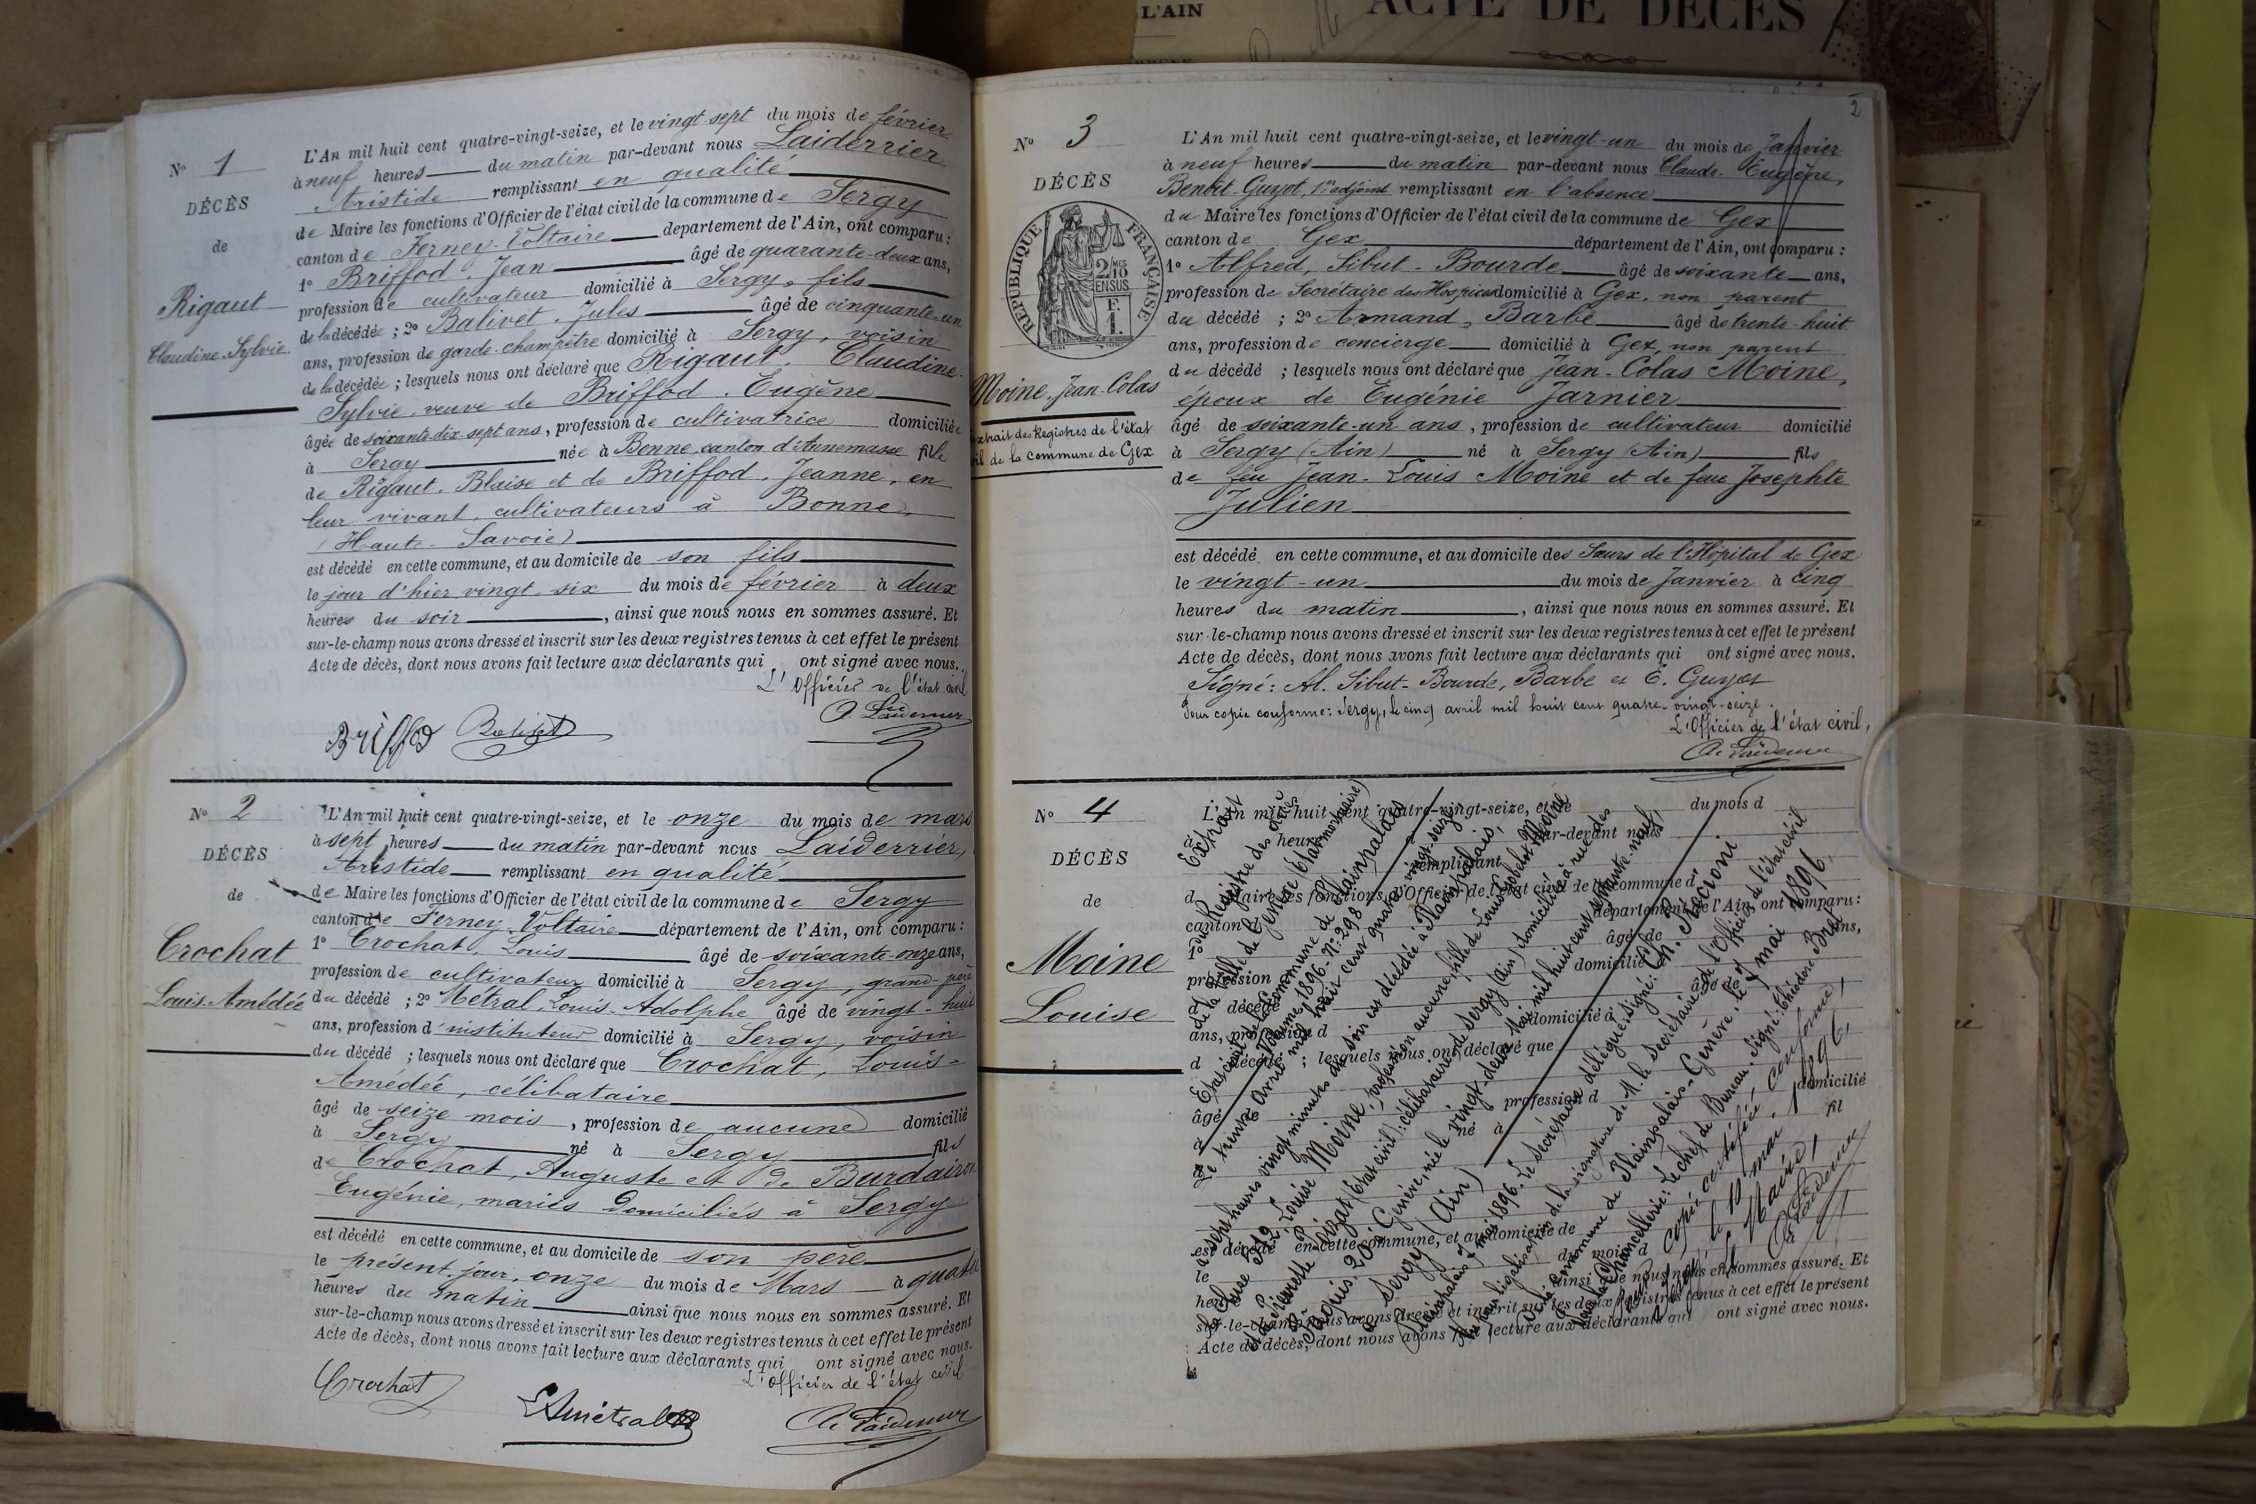 L'AIN
ACTE DE DÉCÈS
N° 1
DÉCÈS
de
Rigaut
Claudine-Sylvie
L'An mil huit cent quatre-vingt-seize, et le vingt-sept du mois de février
à neuf heures du matin par-devant nous Laiderrier
Aristide remplissant en qualité
de Maire les fonctions d'Officier de l'état civil de la commune de Sergy
canton de Ferney-Voltaire département de l'Ain, ont comparu :
1° Briffod, Jean âgé de quarante-deux ans,
profession de cultivateur domicilié à Sergy, fils
de la décédée ; 2° Balivet, Jules âgé de cinquante-un
ans, profession de garde-champêtre domicilié à Sergy, voisin
de la décédée ; lesquels nous ont déclaré que Rigaut, Claudine-
Sylvie, veuve de Briffod, Eugène
âgée de soixante-dix-sept ans, profession de cultivatrice domiciliée
à Sergy née à Bonne, canton d'Annemasse fille
de Rigaut, Blaise et de Briffod, Jeanne, en
leur vivant, cultivateurs à Bonne,
(Haute-Savoie)
est décédé en cette commune, et au domicile de son fils
le jour d'hier vingt-six du mois de février à deux
heures du soir, ainsi que nous nous en sommes assuré. Et
sur-le-champ nous avons dressé et inscrit sur les deux registres tenus à cet effet le présent
Acte de décès, dont nous avons fait lecture aux déclarants qui ont signé avec nous.
L'Officier de l'état civil
Briffod Balivet
N° 2
DÉCÈS
de
Crochat
Louis-Amédée
L'An mil huit cent quatre-vingt-seize, et le onze du mois de mars
à sept heures du matin par-devant nous Laiderrier,
Aristide remplissant en qualité
de Maire les fonctions d'Officier de l'état civil de la commune de Sergy
canton de Ferney-Voltaire département de l'Ain, ont comparu :
1° Crochat, Louis âgé de soixante-onze ans,
profession de cultivateur domicilié à Sergy, grand-père
du décédé ; 2° Métral, Louis-Adolphe âgé de vingt-huit
ans, profession d'instituteur domicilié à Sergy, voisin
du décédé ; lesquels nous ont déclaré que Crochat, Louis-
Amédée, célibataire
âgé de seize mois, profession de aucune domicilié
à Sergy né à Sergy fils
de Crochat, Auguste et de Burdairon
Eugénie, mariés domiciliés à Sergy
est décédé en cette commune, et au domicile de son père
le présent jour, onze du mois de Mars à quatre
heures du matin ainsi que nous nous en sommes assuré. Et
sur-le-champ nous avons dressé et inscrit sur les deux registres tenus à cet effet le présent
Acte de décès, dont nous avons fait lecture aux déclarants qui ont signé avec nous.
L'Officier de l'état civil
Crochat
2
N° 3
DÉCÈS
RÉPUBLIQUE FRANÇAISE
2 MES 10
EN SUS
F.
1.
Moine, Jean-Colas
extrait des Registres de l'état
civil de la commune de Gex
L'An mil huit cent quatre-vingt-seize, et le vingt-un du mois de Janvier
à neuf heures du matin par-devant nous Claude-Eugène,
Benoit-Guyot, 1er adjoint remplissant en l'absence
du Maire les fonctions d'Officier de l'état civil de la commune de Gex
canton de Gex département de l'Ain, ont comparu :
1° Alfred, Sibut-Bourde âgé de soixante ans,
profession de Secrétaire des Hospices domicilié à Gex, non parent
du décédé ; 2° Armand, Barbe âgé de trente-huit
ans, profession de concierge domicilié à Gex, non parent
du décédé ; lesquels nous ont déclaré que Jean-Colas Moine,
époux de Eugénie Jarnier
âgé de soixante-un ans, profession de cultivateur domicilié
à Sergy (Ain) né à Sergy (Ain) fils
de feu Jean-Louis Moine et de feue Josephte
Julien
est décédé en cette commune, et au domicile des Sœurs de l'Hôpital de Gex
le vingt-un du mois de Janvier à cinq
heures du matin, ainsi que nous nous en sommes assuré. Et
sur-le-champ nous avons dressé et inscrit sur les deux registres tenus à cet effet le présent
Acte de décès, dont nous avons fait lecture aux déclarants qui ont signé avec nous.
Signé : Al. Sibut-Bourde, Barbe et E. Guyot
Pour copie conforme : Sergy, le cinq avril mil huit cent quatre-vingt-seize.
L'Officier de l'état civil,
N° 4
DÉCÈS
de
Moine
Louise
L'An mil huit cent quatre-vingt-seize, et le du mois d
à heures par-devant nous
remplissant
d Maire les fonctions d'Officier de l'état civil de la commune d
canton département de l'Ain, ont comparu :
1° âgé de ans,
profession domicilié à
d décédé âgé de
ans, profession d domicilié à
d décédé ; lesquels nous ont déclaré que
âgé de profession d domicilié
à né à fil
est décédé en cette commune, et au domicile de
le du mois d
heures ainsi que nous nous en sommes assuré. Et
sur-le-champ nous avons dressé et inscrit sur les deux registres tenus à cet effet le présent
Acte de décès, dont nous avons fait lecture aux déclarants qui ont signé avec nous.
Extrait
du Registre des décès
de la Ville de Genève
Etat civil de la Commune de Plainpalais
Volume 1896. N° 298
Le trente avril mil huit cent quatre vingt-seize
à sept heures vingt minutes du soir est décédée à Plainpalais,
Louise Moine, profession aucune, fille de Louis Moine
célibataire, de Sergy (Ain) domiciliée à rue des
Pâquis 20 à Genève, née le vingt-deux Mai mil huit cent septante-neuf,
à Sergy (Ain)
Plainpalais 7 mai 1896. Le Secrétaire délégué, signé :
Vu pour légalisation de la signature de M. le Secrétaire de l'Officier de l'état civil
de la commune de Plainpalais. Genève, le 7 mai 1896.
Pour la Chancellerie : Le chef de Bureau. Signé : Théodore Bret
Pour copie certifiée conforme,
Sergy, le 10 mai 1896,
Le Maire,